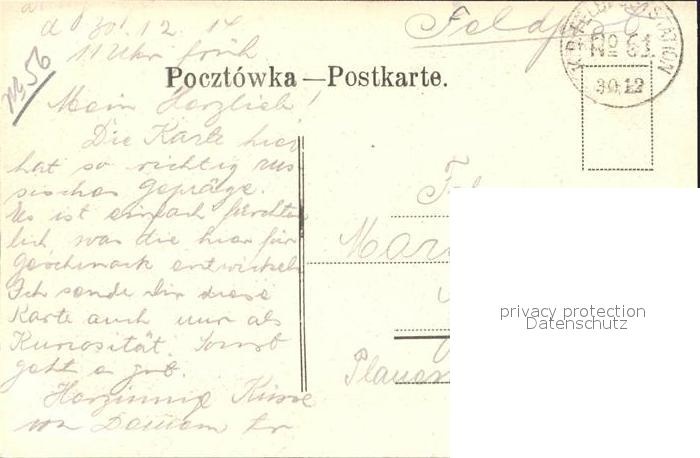 d 30.12.14
11 Uhr früh
No 56
Feldpost
K.D. FELDPOSTSTATION
No 61
30.12
Pocztówka — Postkarte.
Mein Herzlieb!
Die Karte hier
hat so richtig rus-
sisches Gepräge.
Es ist einfach fürchter
lich, was die hier für
Geschmack entwickeln
Ich sende Dir diese
Karte auch nur als
Kuriosität. Sonst
geht es gut.
Herzinnige Küsse
von Deinem
Plauen
privacy protection
Datenschutz